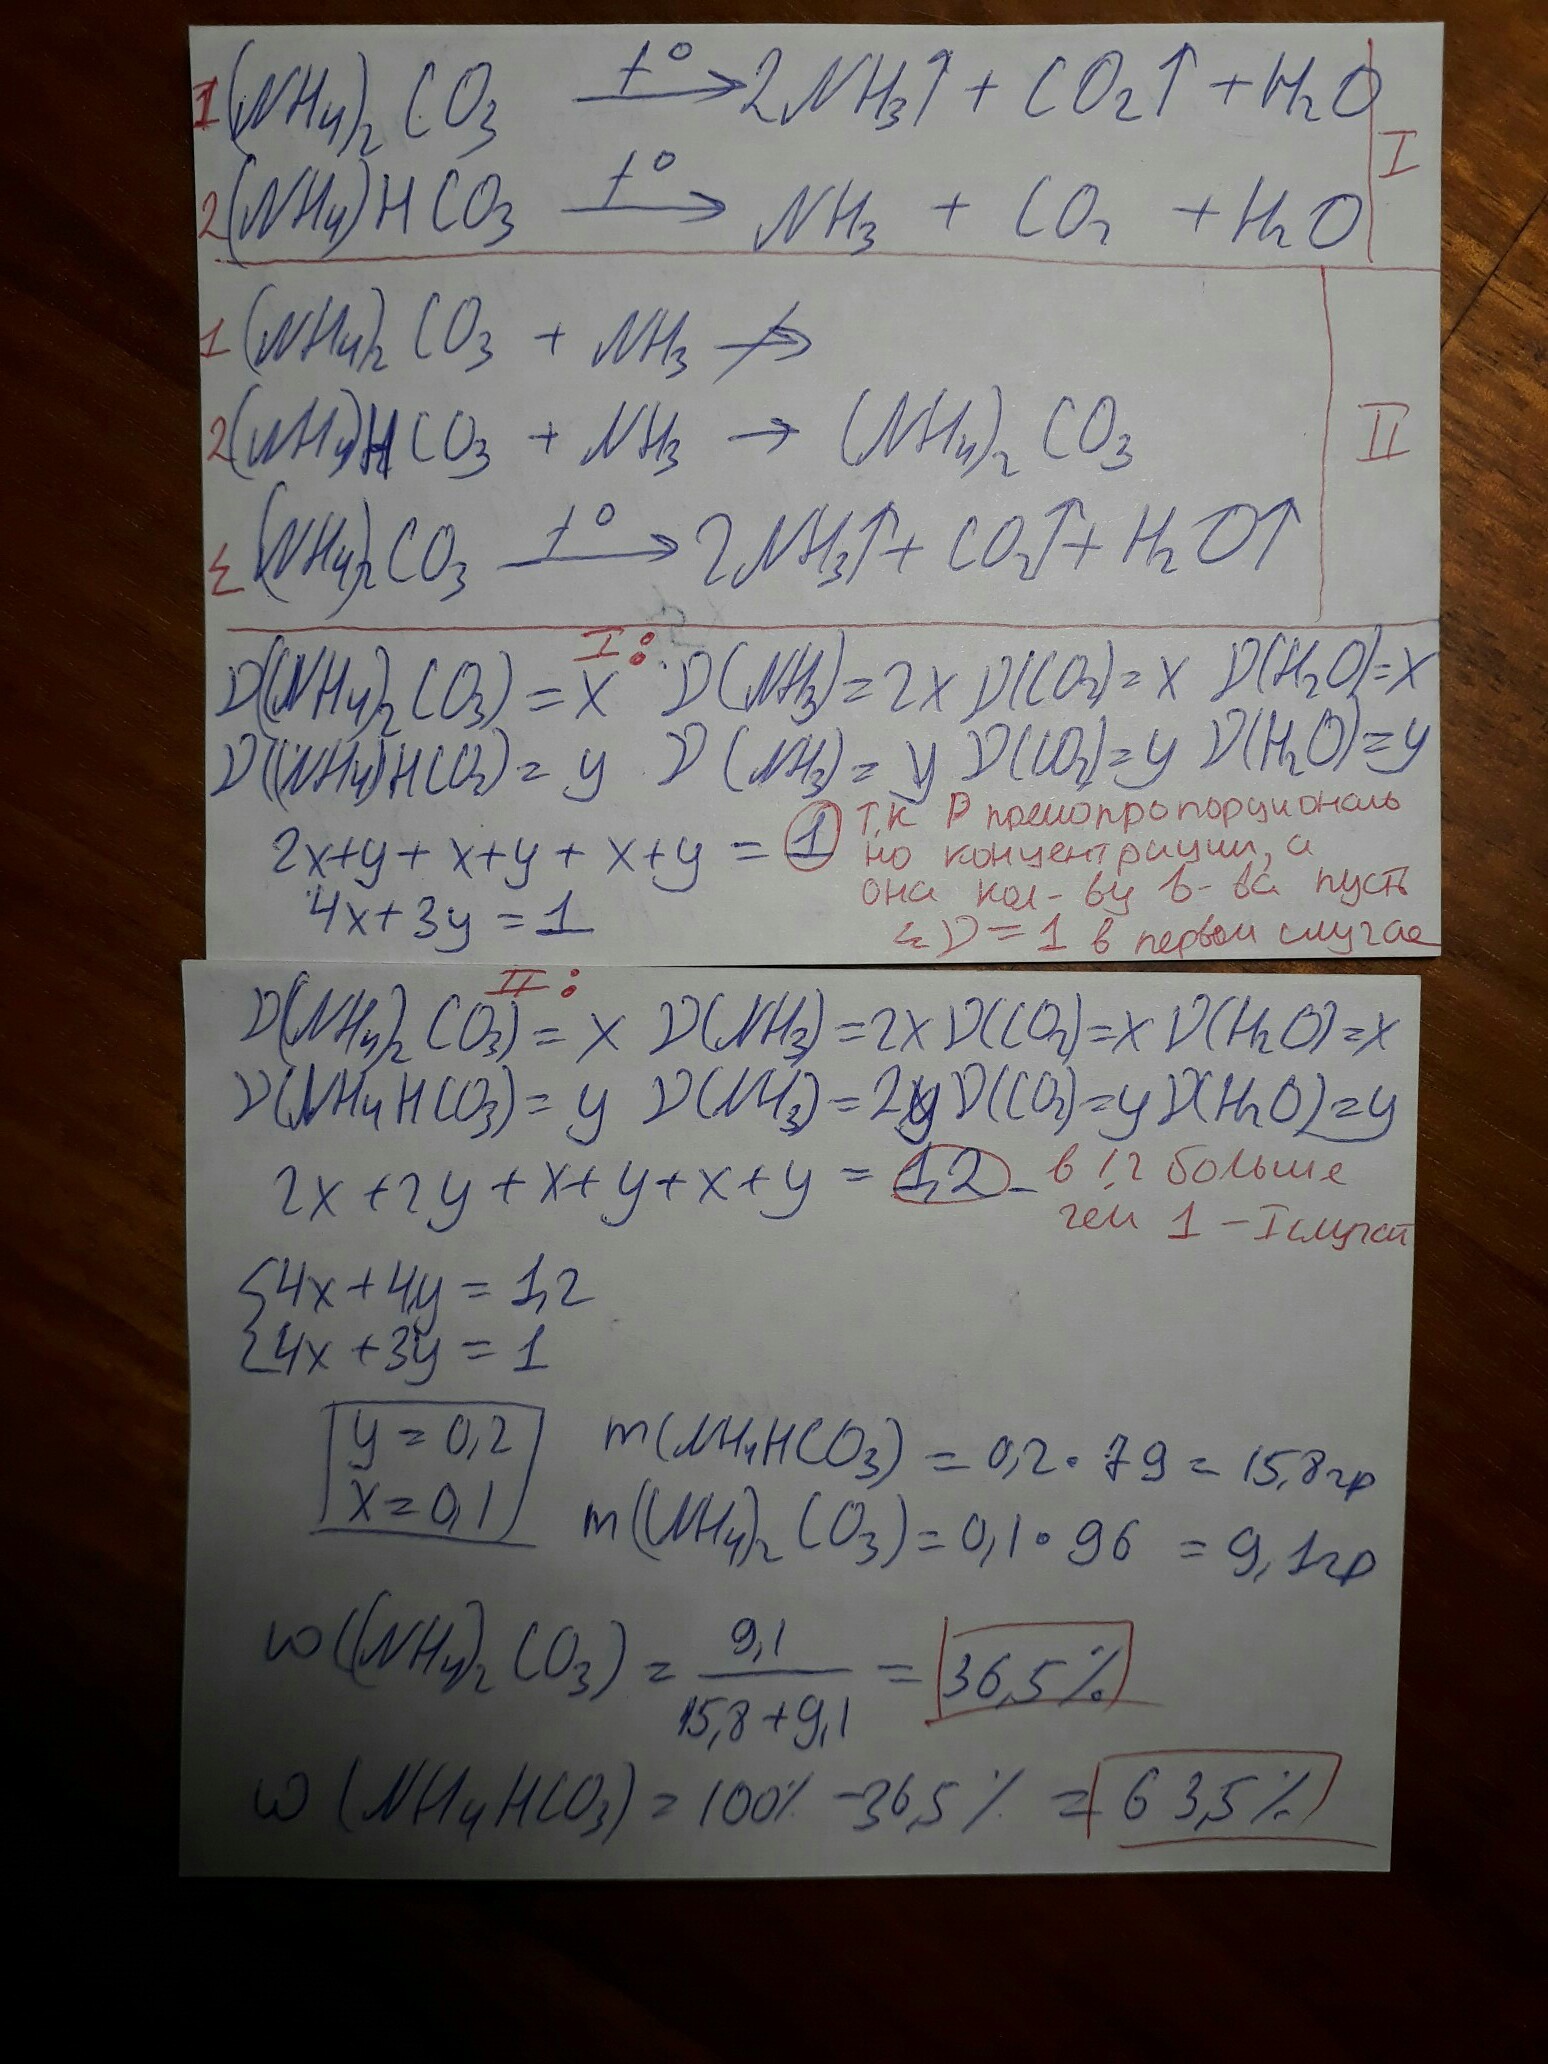 1 (NH₄)₂CO₃ —t°→ 2NH₃↑ + CO₂↑ + H₂O
I
2 (NH₄)HCO₃ —t°→ NH₃ + CO₂ + H₂O
1 (NH₄)₂CO₃ + NH₃ ↛
2 (NH₄)HCO₃ + NH₃ → (NH₄)₂CO₃
II
Σ (NH₄)₂CO₃ —t°→ 2NH₃↑ + CO₂↑ + H₂O↑
I:
ν((NH₄)₂CO₃) = x ν(NH₃) = 2x ν(CO₂) = x ν(H₂O) = x
ν((NH₄)HCO₃) = y ν(NH₃) = y ν(CO₂) = y ν(H₂O) = y
2x+y + x+y + x+y = 1
4x+3y = 1
т,к P премопропорциональ
но концентрации, а
она кол-ву в-ва пусть
Σν = 1 в первом случае
II:
ν(NH₄)₂CO₃) = x ν(NH₃) = 2x ν(CO₂) = x ν(H₂O) = x
ν(NH₄HCO₃) = y ν(NH₃) = 2y ν(CO₂) = y ν(H₂O) = y
2x + 2y + x + y + x + y = 1,2 - в 1,2 больше
чем 1 - I случай
{4x + 4y = 1,2
{4x + 3y = 1
y = 0,2
x = 0,1
m(NH₄HCO₃) = 0,2 · 79 = 15,8 гр
m((NH₄)₂CO₃) = 0,1 · 96 = 9,1 гр
ω((NH₄)₂CO₃) = 9,1 / 15,8+9,1 = 36,5%
ω(NH₄HCO₃) = 100% - 36,5% = 63,5%